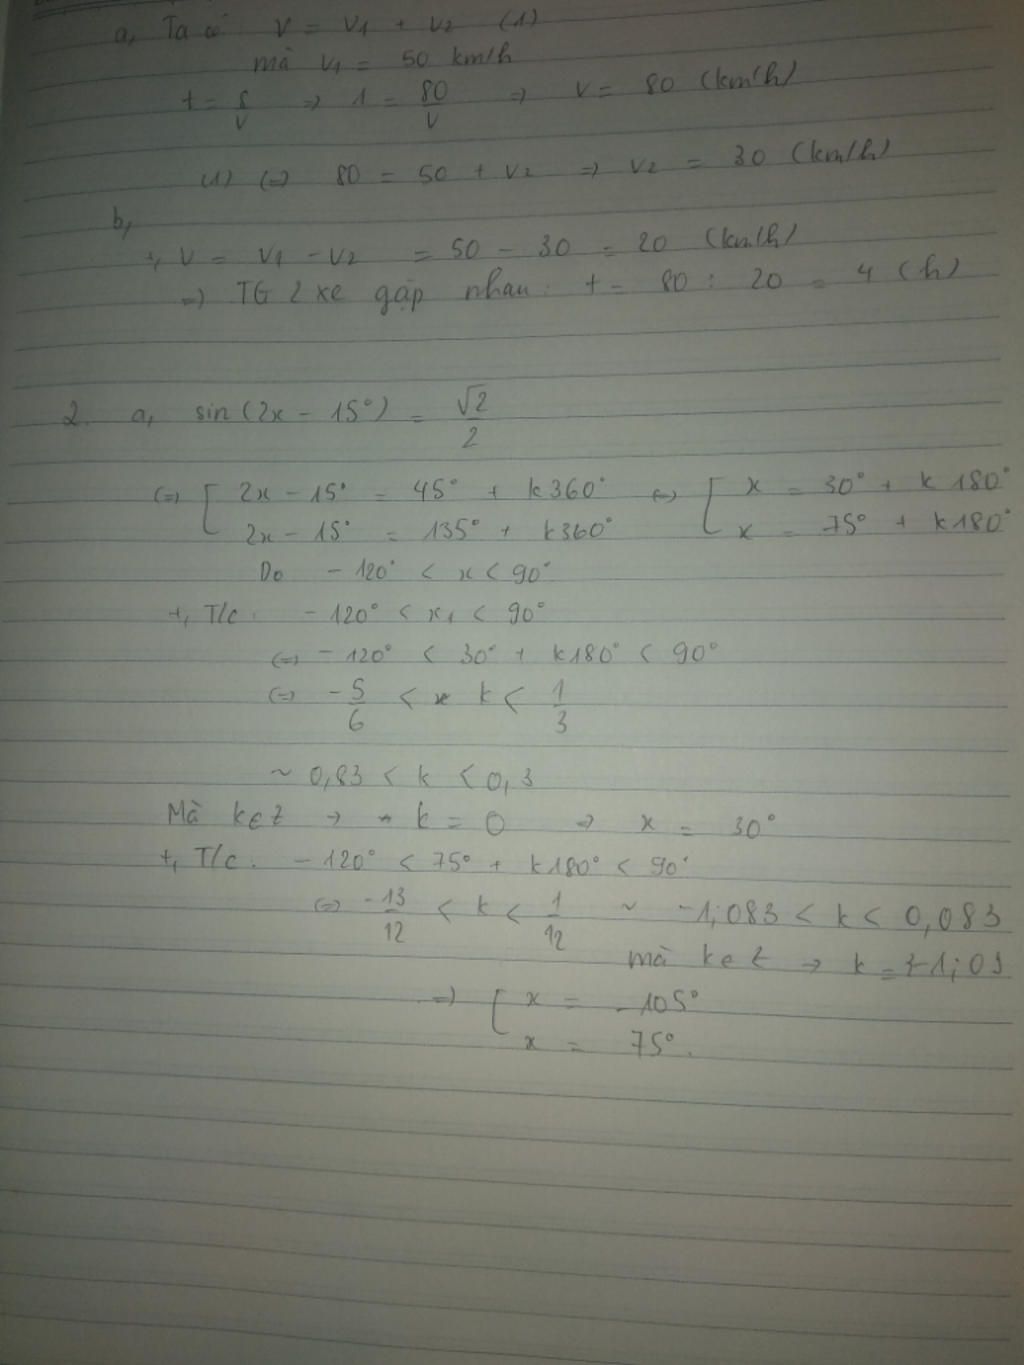 a, Ta có V = V1 + V2 (1)
mà V1 = 50 km/h
t = S/V => 1 = 80/V => V = 80 (km/h)
(1) (=) 80 = 50 + V2 => V2 = 30 (km/h)
b,
+, V = V1 - V2 = 50 - 30 = 20 (km/h)
=> TG 2 xe gặp nhau: t = 80 : 20 = 4 (h)
2. a, sin(2x - 15°) = √2/2
(=) [ 2x - 15° = 45° + k360° (=) [ x = 30° + k 180°
2x - 15° = 135° + k360° x = 75° + k180°
Do - 120° < x < 90°
+, T/c: - 120° < x1 < 90°
(=) - 120° < 30° + k180° < 90°
(=) - 5/6 < k < 1/3
~ 0,83 < k < 0,3
Mà k∈Z → k = 0 => x = 30°
+, T/c: - 120° < 75° + k180° < 90°
(=) -13/12 < k < 1/12 ~ -1,083 < k < 0,083
mà k∈Z → k = {-1;0}
=> [ x = - 105°
x = 75°.